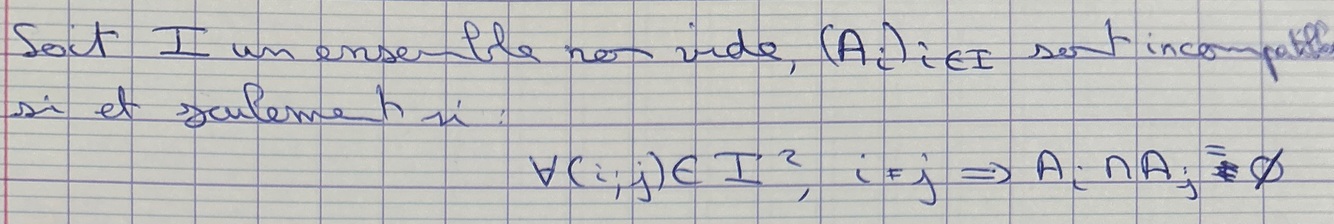 Soit I un ensemble non vide, (Ai)i∈I sont incompatibles
si et seulement si :
∀(i,j)∈ I², i≠j ⇒ Ai ∩ Aj = ∅